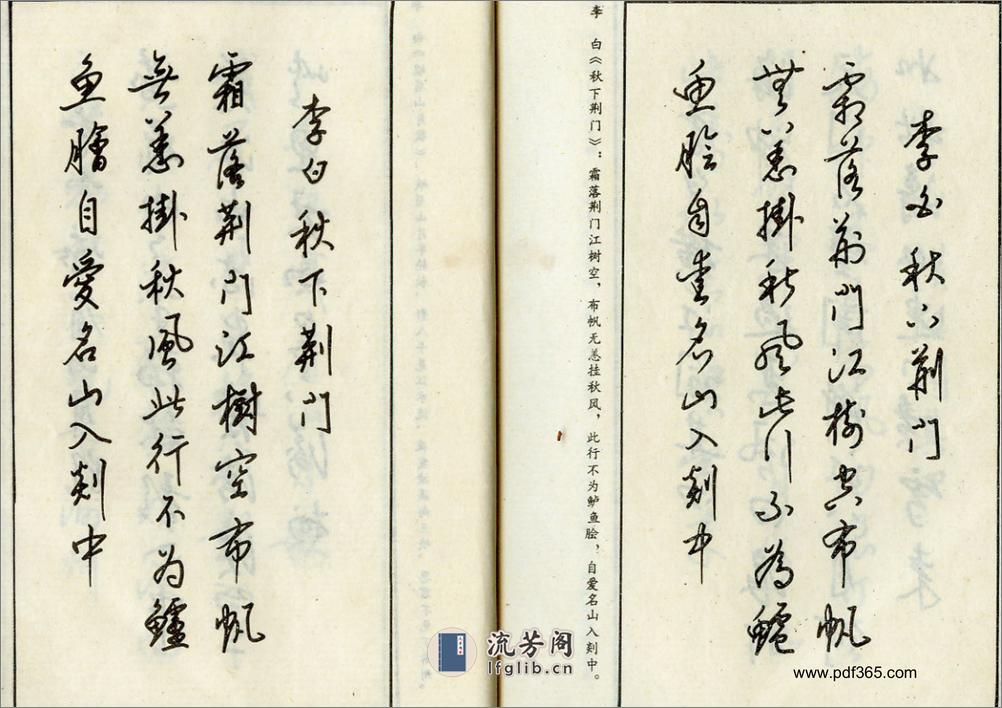 李白秋下荆門
霜落荆門江樹空布帆
無恙掛秋風此行不為鱸
魚膾自愛名山入剡中
李白《秋下荆门》：霜落荆门江树空，布帆无恙挂秋风，此行不为鲈鱼脍，自爱名山入剡中。
李白秋下荆門
霜落荆門江樹空布帆
無恙掛秋風此行不為鱸
魚膾自愛名山入剡中
流芳阁
lfglib.cn
www.pdf365.com